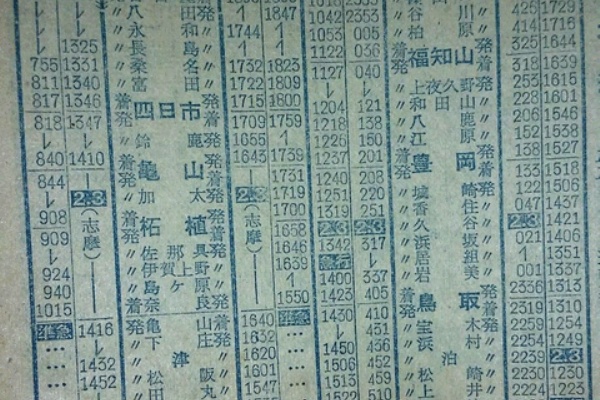 八 田 〃 1847 1042 2353 谷 川 〃 425 1729
永 和 〃 1744 1053 005 柏 原 〃 414 1716
1325 〃 長 島 〃 1122 036 着 福知山 発 325 1644
755 1331 〃 桑 名 〃 1732 1823 発 着 318 1639
811 1340 〃 富 田 〃 1722 1809 1127 040 〃 上 夜 久 野 〃 253 1615
817 1346 着 四日市 発 1715 1800 1204 121 〃 和 田 山 〃 228 1601
818 1347 発 着 1709 1759 1218 138 〃 八 鹿 〃 206 1546
鈴 鹿 1655 1226 150 〃 江 原 〃 152 1538
840 1410 着 亀山 発 1643 1739 1237 201 着 豊岡 発 138 1527
844 発 着 1731 1240 208 発 着 133 1518
2·3 〃 加 太 〃 2·3 1719 1251 220 〃 城 崎 〃 122 1506
908 着 柘植 発 (志摩) 1700 1319 251 〃 香 住 〃 047 1437
909 (志摩) 発 着 1658 2·3 2·3 〃 久 谷 〃 2·3 1421
〃 佐 那 具 〃 1646 1342 317 〃 浜 坂 〃 021 1406
924 〃 伊 賀 上 野 〃 1639 急行 〃 居 組 〃 1351
940 〃 島 ケ 原 〃 1400 337 〃 岩 美 〃 001 1337
1015 〃 奈 良 発 1550 1423 405 着 鳥取 発 2336 1313
準急 1416 発 亀 山 着 1640 準急 1430 410 発 着 2319 1310
… 〃 下 庄 〃 1632 … 431 〃 宝 木 〃 2259 1254
… 1432 津 〃 1620 … 1450 436 〃 浜 村 〃 2249 1249
… 1452 〃 松 阪 〃 1601 … 1506 452 泊 〃 2239 2·3
1547 1513 459 〃 松 崎 〃 2230 1230
田 丸 〃 1522 510 〃 上 井 〃 2224 1223